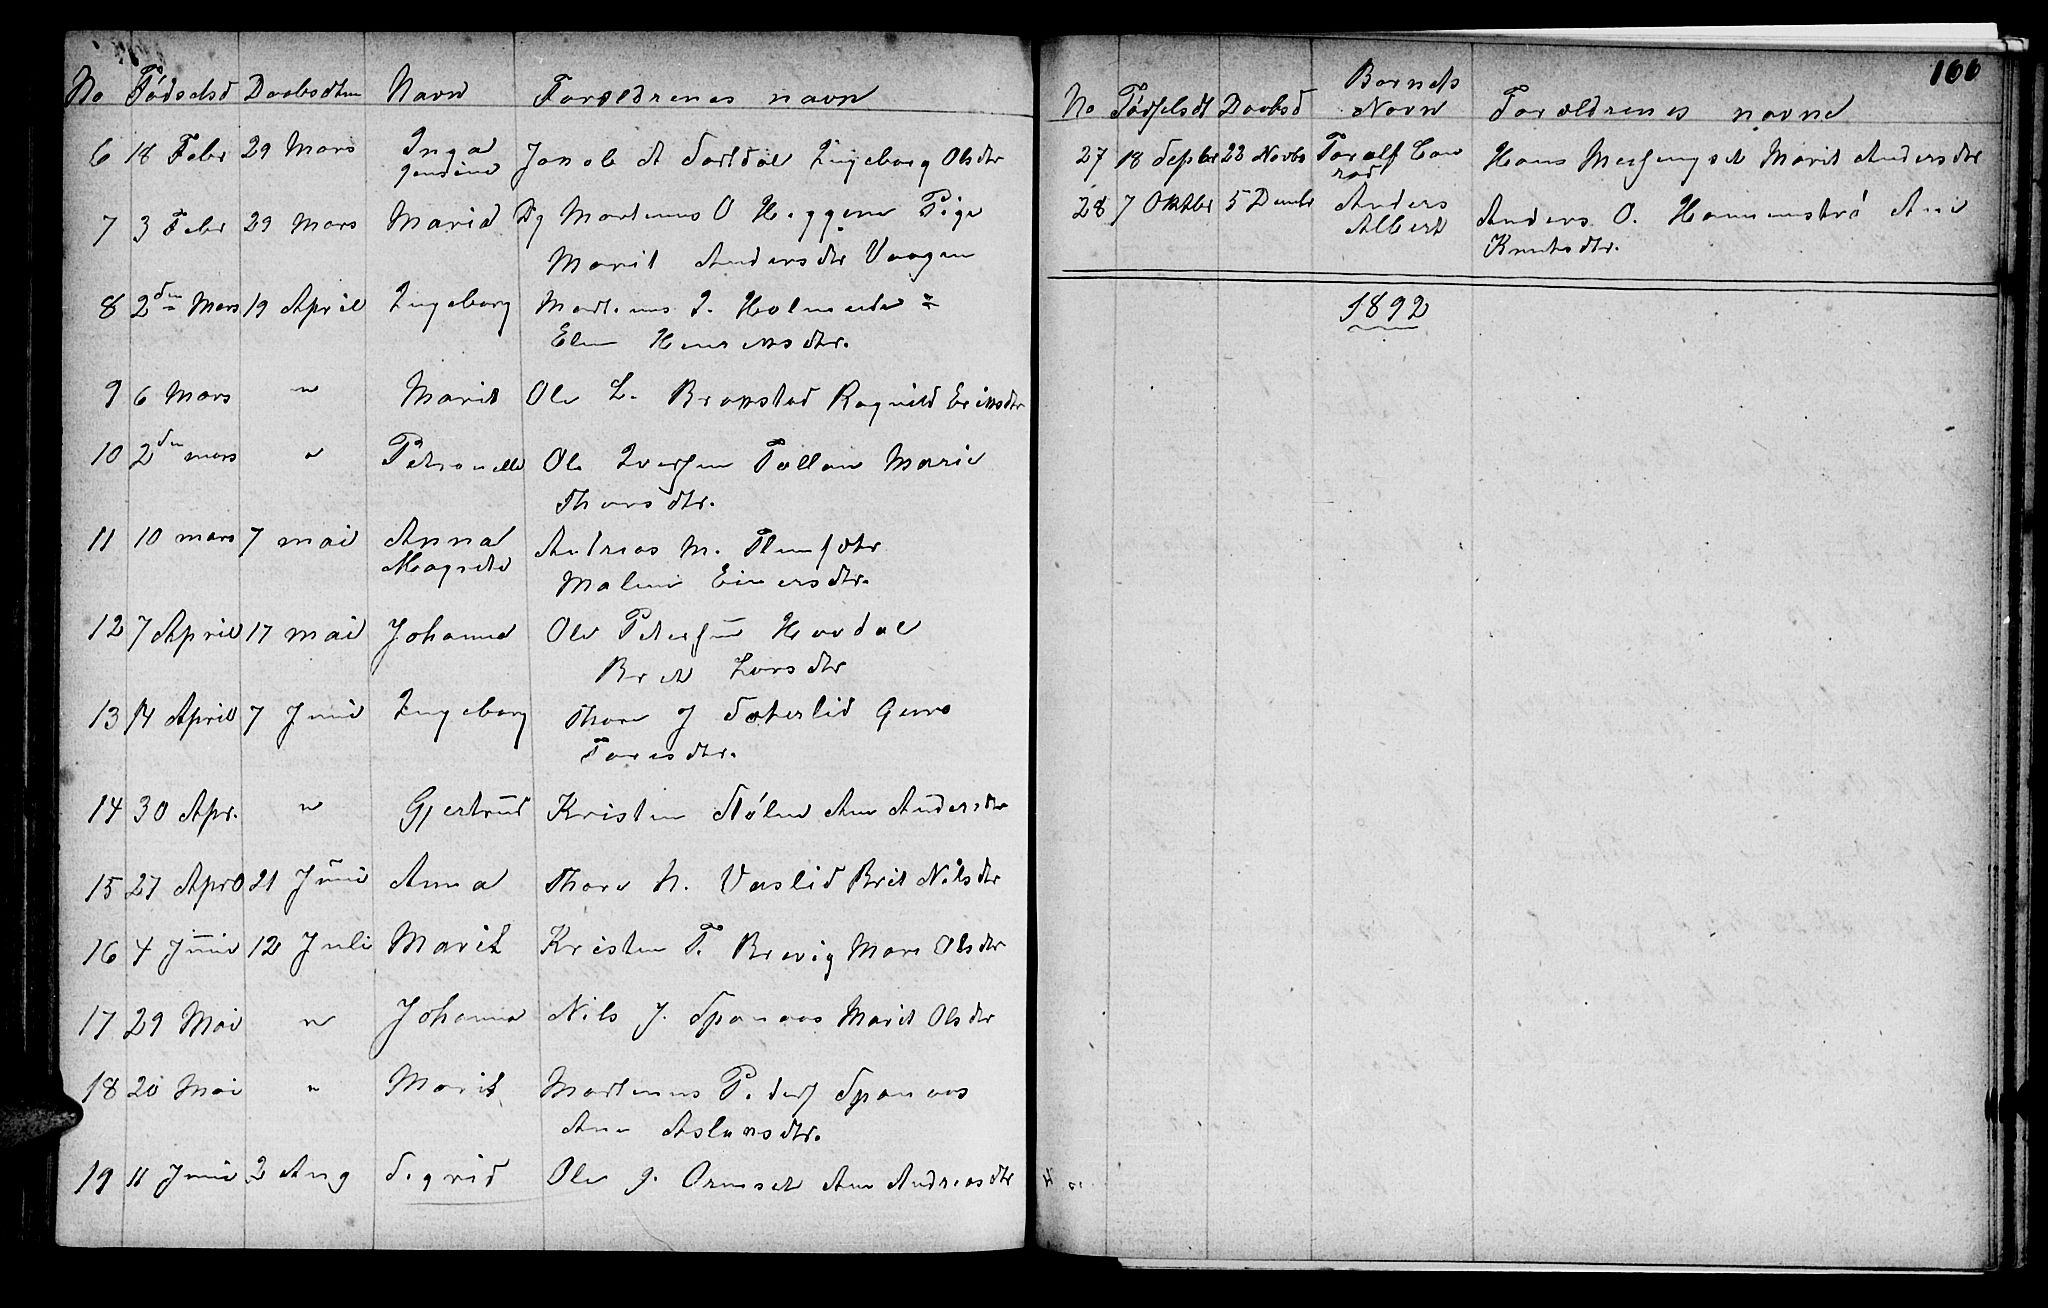 No Fødselsd Daabsdten Navn Forældrenes navn
6 18 Febr 29 Mars Inga Jakob A Sortdal Ingeborg Olsdtr
Gendine
7 3 Febr 29 Mars Marid Dg Martenus O Heggem Pige
Marit Andersdtr Vaagen
8 2den Mars 19 April Ingeborg Martinus I. Holmeide =
Elen Henriksdtr.
9 6 Mars " Marit Ole L. Brokstad Ragnild Eriksdtr
10 2den mars " Petronelle Ole Iversen Tøllan Marie
Thorsdtr.
11 10 mars 7 mai Anna Andreas M.
Magrete Malene Einersdtr.
12 7 April 17 mai Johanna Ole Petersen Hovdal
Bret Larsdtr
13 14 April 7 Juni Ingeborg Thore J Sæterlid Guro
Toresdtr.
14 30 Apr. " Gjertrud Kristen Stølen Ane Andersdtr
15 27 Apr 21 Juni Anna Thore N. Vaslid Brit Nilsdtr
16 4 Juni 12 Juli Marit Kristen T. Brevig Mare Olsdtr
17 29 Mai " Johanna Nils J. Spanaas Marit Olsdtr
18 20 Mai " Marit Martenus P. Spanaas
Ane Aslaksdtr.
19 11 Juni 2 Aug Sigrid Ole J. Ormset Ane Andreasdtr
166
Barnets
No Fødselsdt Daabsd Navn Forældrenes navne
27 18 Septbr 22 Novbr Toralf Con Hans Marit Andersdtr
rad
28 7 Oktbr 5 Decmbr Anders Anders O. Hammenstrø Ane
Albert Knutsdtr.
1892